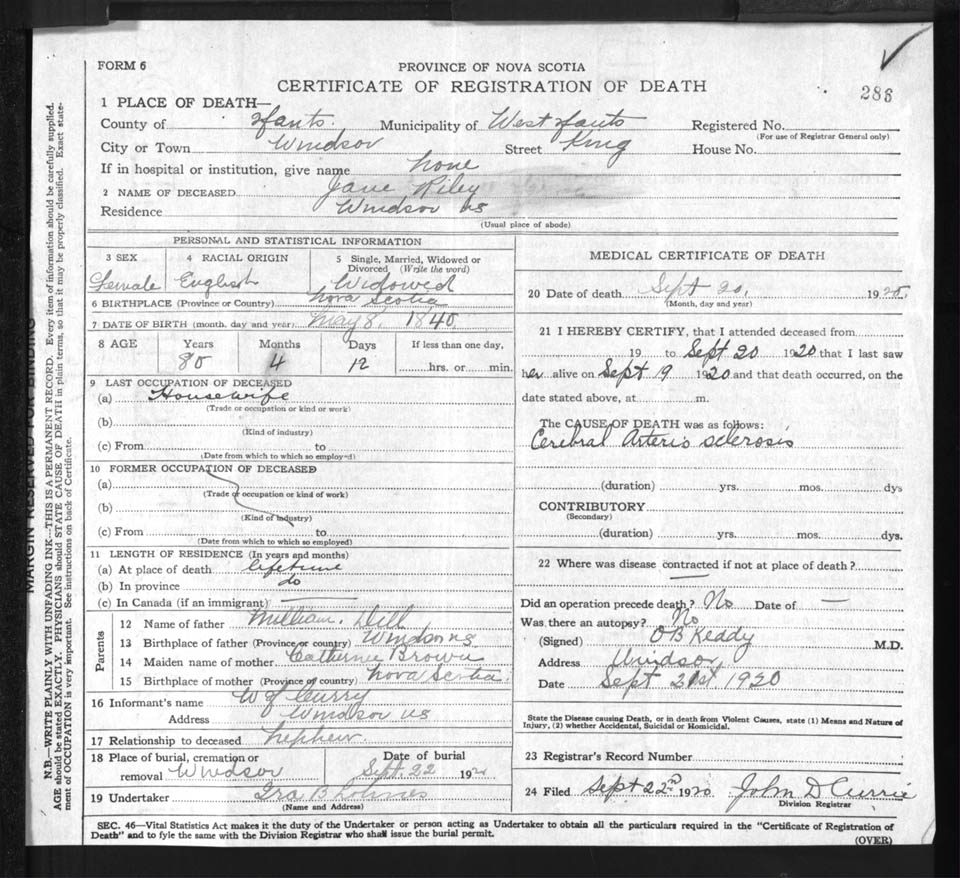 FORM 6
PROVINCE OF NOVA SCOTIA
CERTIFICATE OF REGISTRATION OF DEATH
286
1 PLACE OF DEATH—
County of Hants. Municipality of West Hants Registered No.
(For use of Registrar General only)
City or Town Windsor Street King House No.
If in hospital or institution, give name none
2 NAME OF DECEASED Jane Riley
Residence Windsor NS
(Usual place of abode)
PERSONAL AND STATISTICAL INFORMATION
3 SEX 4 RACIAL ORIGIN 5 Single, Married, Widowed or Divorced (Write the word)
Female English Widowed
6 BIRTHPLACE (Province or Country) Nova Scotia
7 DATE OF BIRTH (month, day and year) May 8, 1840
8 AGE Years Months Days If less than one day,
80 4 12 hrs. or min.
9 LAST OCCUPATION OF DECEASED
(a) Housewife
(Trade or occupation or kind or work)
(b)
(Kind of industry)
(c) From to
(Date from which to which so employed)
10 FORMER OCCUPATION OF DECEASED
(a)
(Trade or occupation or kind of work)
(b)
(Kind of industry)
(c) From to
(Date from which to which so employed)
11 LENGTH OF RESIDENCE (In years and months)
(a) At place of death lifetime
(b) In province do
(c) In Canada (if an immigrant)
Parents
12 Name of father William. Dill
13 Birthplace of father (Province or country) Windsor NS
14 Maiden name of mother Catherine Brown
15 Birthplace of mother (Province or country) Nova Scotia.
16 Informant's name W J Curry
Address Windsor NS
17 Relationship to deceased nephew.
18 Place of burial, cremation or removal Windsor
Date of burial Sept. 22 1920
19 Undertaker Ira B Lohnes
(Name and Address)
MEDICAL CERTIFICATE OF DEATH
20 Date of death Sept 20, 1920.
(Month, day and year)
21 I HEREBY CERTIFY, that I attended deceased from
19 to Sept 20 1920 that I last saw
her alive on Sept 19 1920 and that death occurred, on the
date stated above, at m.
The CAUSE OF DEATH was as follows:
Cerebral Arterio sclerosis
(duration) yrs. mos. dys
CONTRIBUTORY
(Secondary)
(duration) yrs. mos. dys.
22 Where was disease contracted if not at place of death?
Did an operation precede death? No Date of —
Was there an autopsy? No
(Signed) O B Keddy M.D.
Address Windsor,
Date Sept 21st 1920
State the Disease causing Death, or in death from Violent Causes, state (1) Means and Nature of
Injury, (2) whether Accidental, Suicidal or Homicidal.
23 Registrar's Record Number
24 Filed Sept 22nd 1920 John D Currie
Division Registrar
SEC. 46—Vital Statistics Act makes it the duty of the Undertaker or person acting as Undertaker to obtain all the particulars required in the "Certificate of Registration of
Death" and to fyle the same with the Division Registrar who shall issue the burial permit.
(OVER)
MARGIN RESERVED FOR BINDING
N.B.—WRITE PLAINLY WITH UNFADING INK—THIS IS A PERMANENT RECORD. Every item of information should be carefully supplied.
AGE should be stated EXACTLY. PHYSICIANS should STATE CAUSE OF DEATH in plain terms, so that it may be properly classified. Exact state-
ment of OCCUPATION is very important. See instructions on back of Certificate.